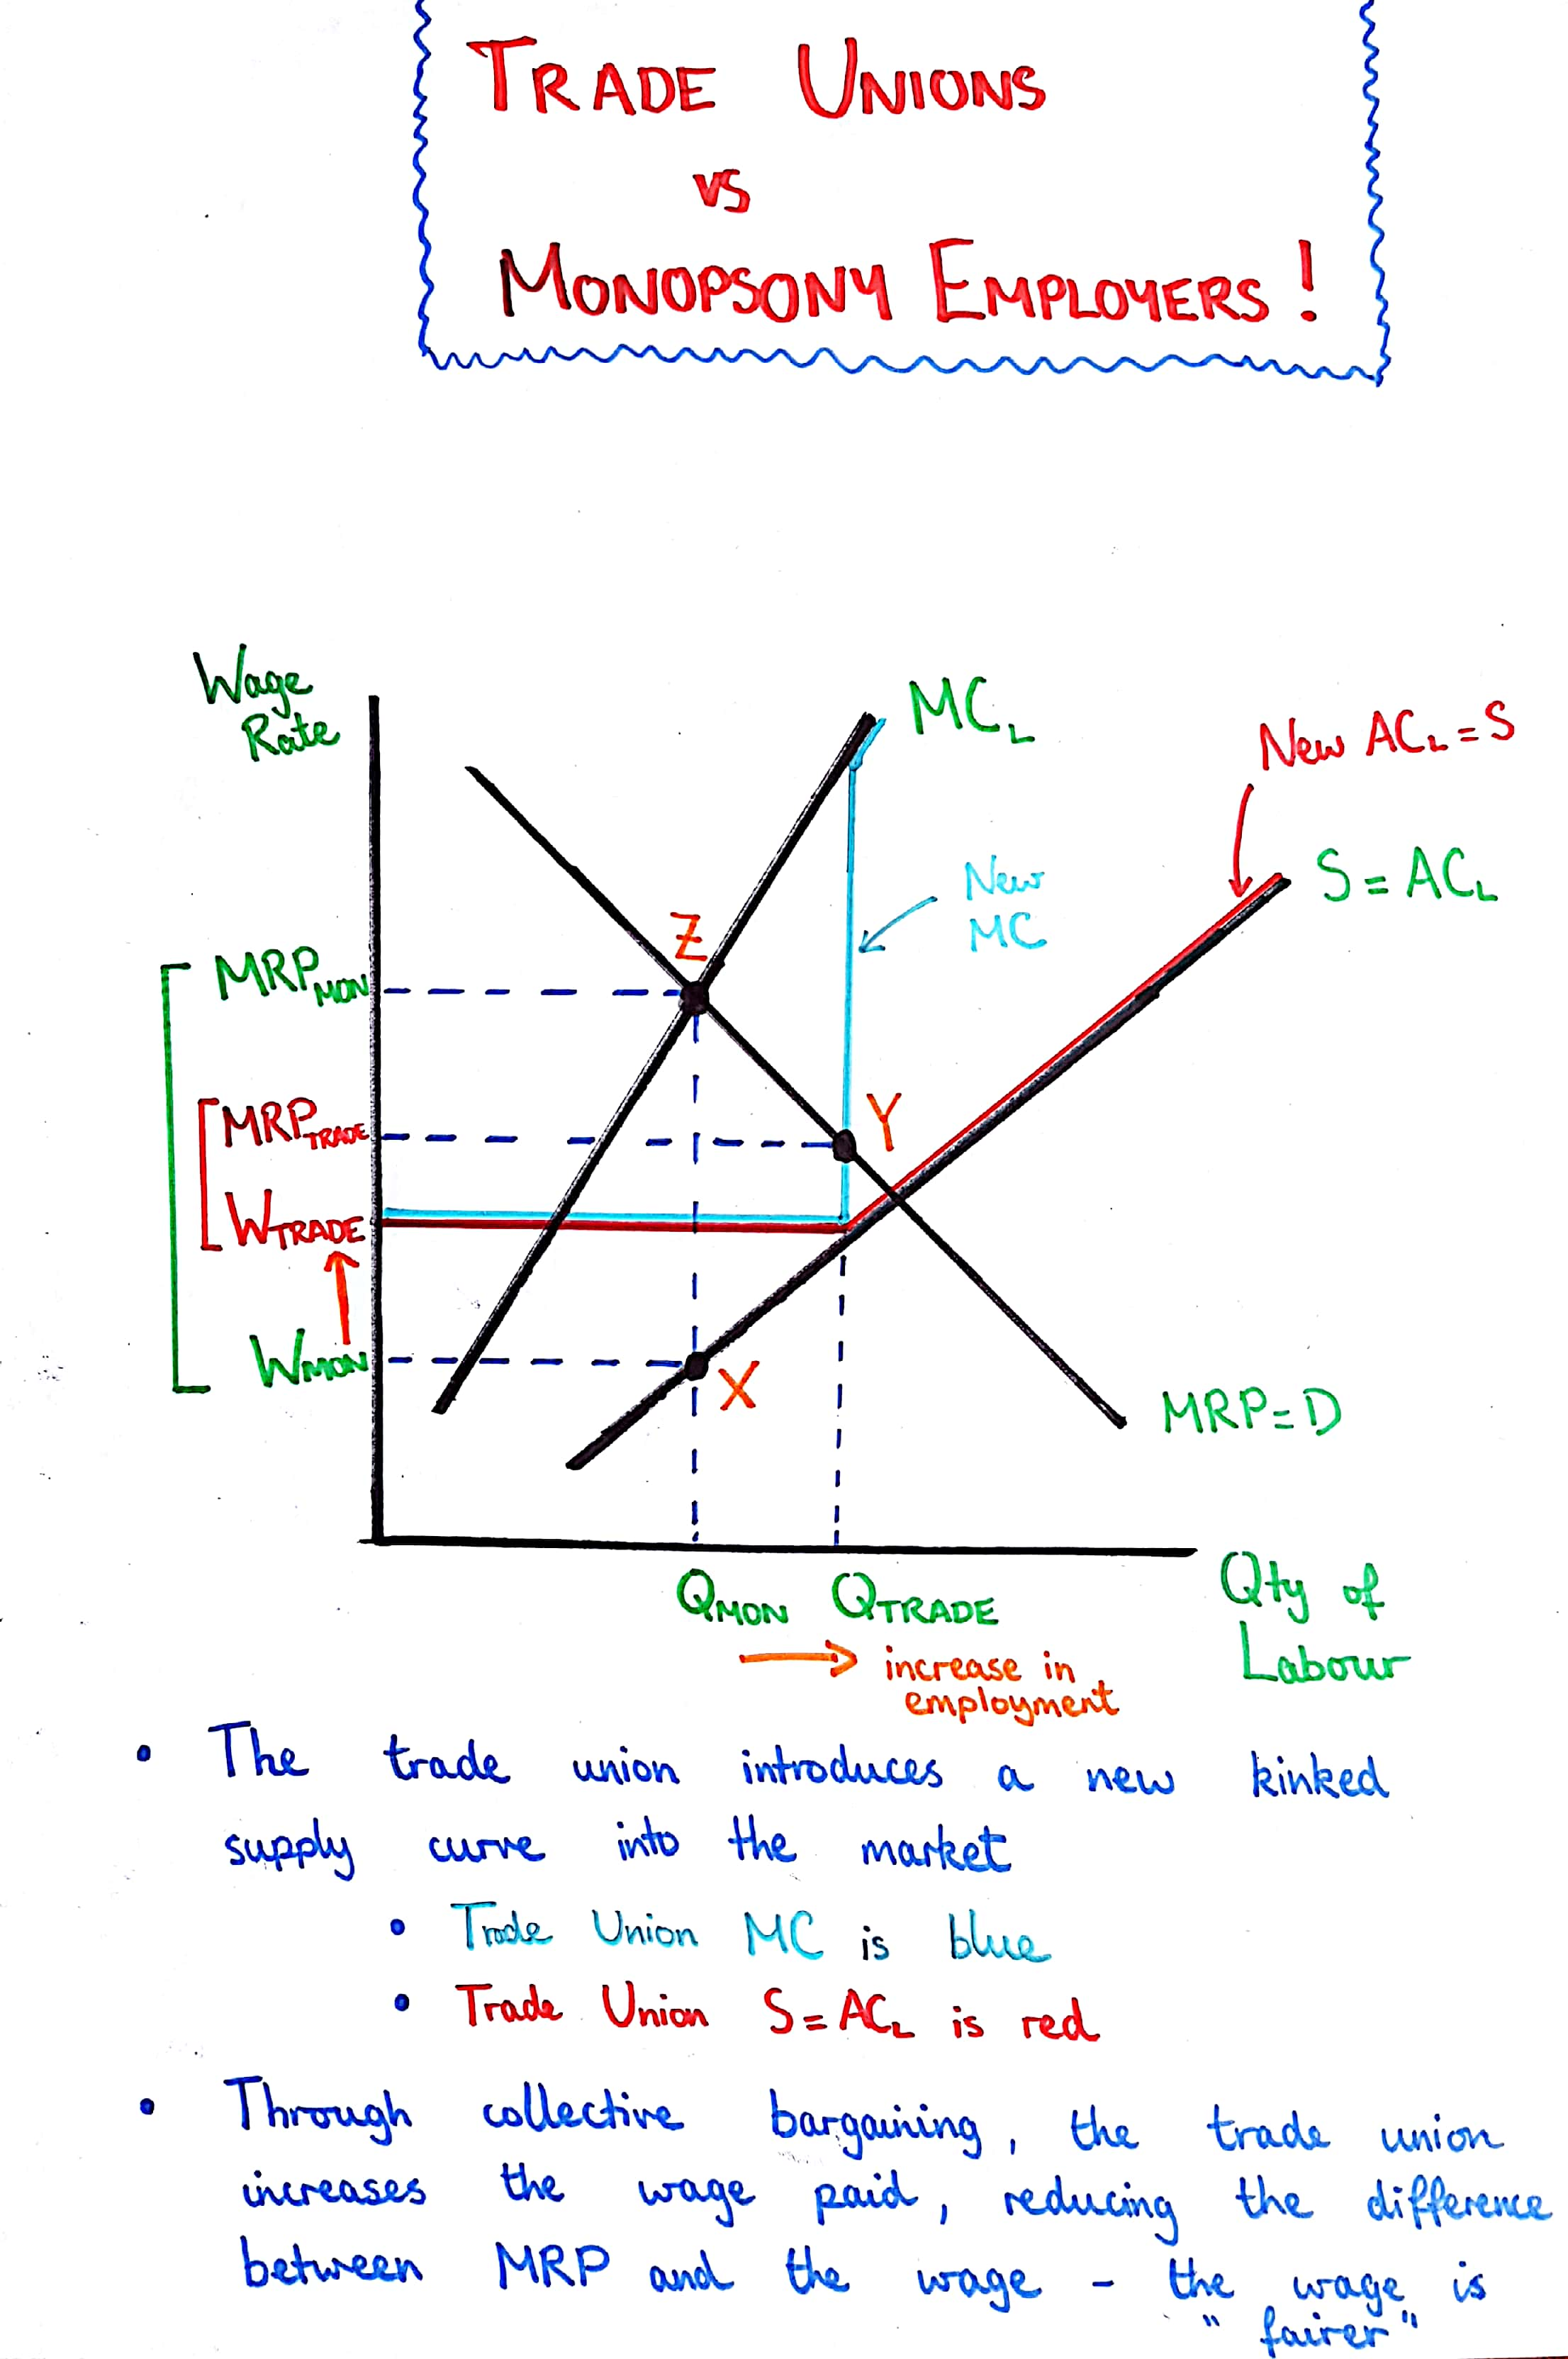 TRADE UNIONS
VS
MONOPSONY EMPLOYERS!
Wage
Rate
MCL
New ACL = S
S = ACL
New
MC
Z
MRPMON
MRPTRADE
Y
WTRADE
WMON
X
MRP = D
QMON QTRADE
Qty of
Labour
increase in
employment
• The trade union introduces a new kinked
supply curve into the market
• Trade Union MC is blue
• Trade Union S = ACL is red
• Through collective bargaining, the trade union
increases the wage paid, reducing the difference
between MRP and the wage - the wage is
"fairer"